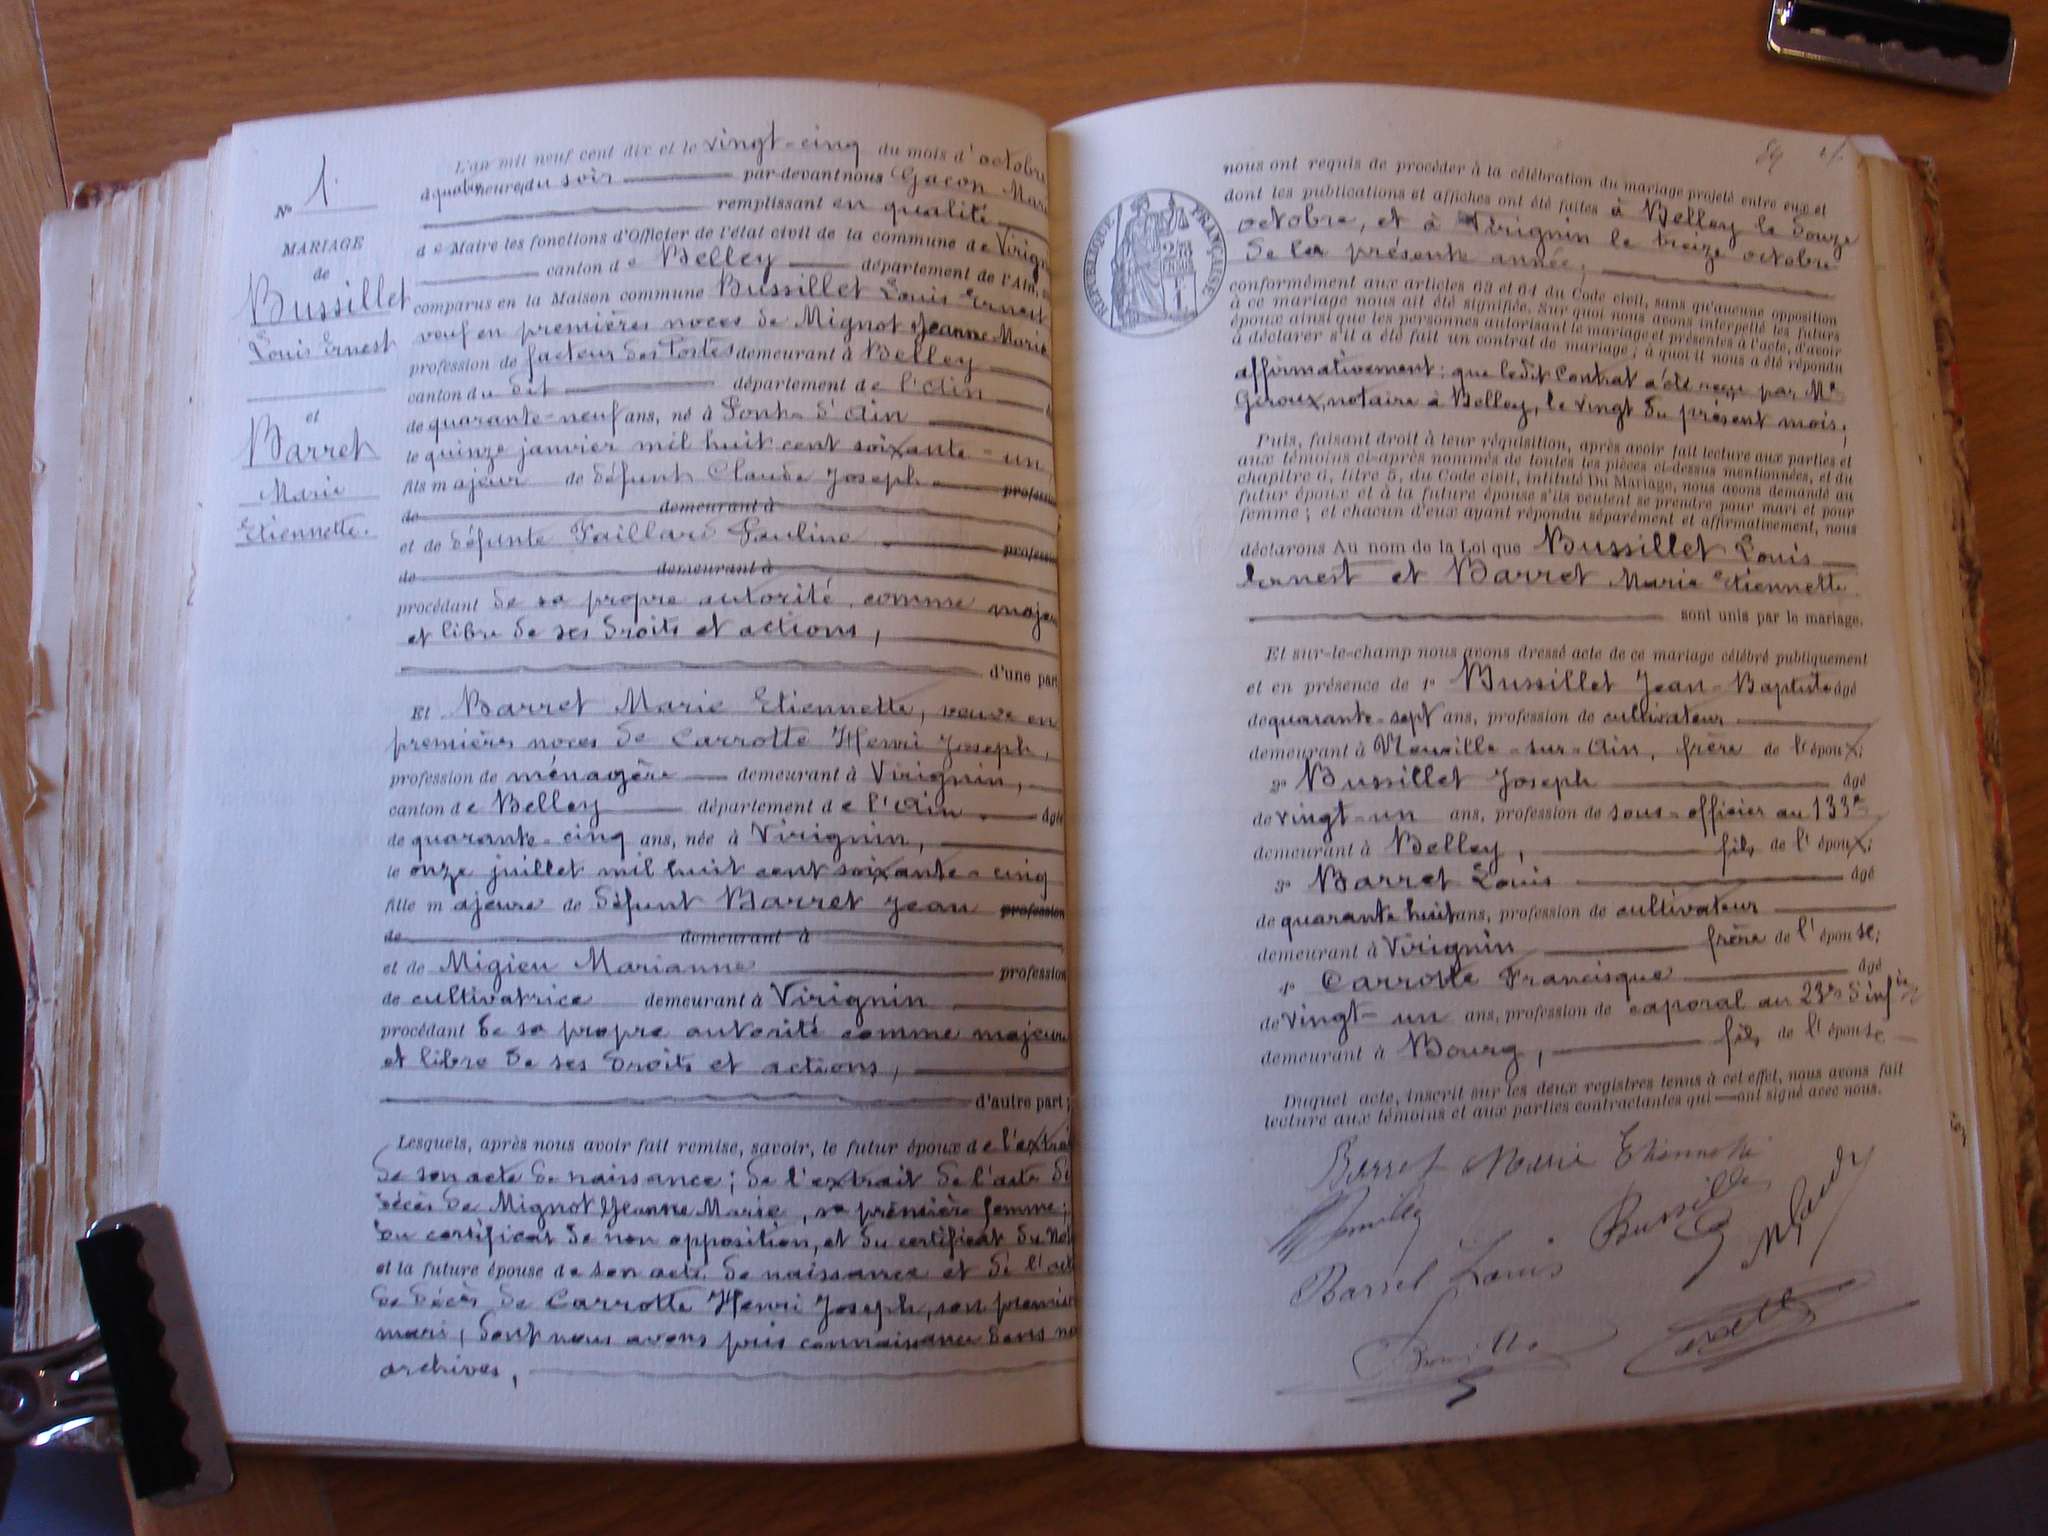 N° 1.
MARIAGE
de
Bussillet
Louis Ernest
et
Barret
Marie
Etiennette.
L'an mil neuf cent dix et le vingt-cinq du mois d'octobre
à quatre heures du soir par-devant nous Gacon
remplissant en qualité
de Maire les fonctions d'Officier de l'état civil de la commune de
canton de Belley département de l'Ain,
comparus en la Maison commune Bussillet Louis Ernest
veuf en premières noces de Mignot Jeanne Marie
profession de facteur des Postes demeurant à Belley
canton du dit département de l'Ain
de quarante-neuf ans, né à Pont d'Ain
le quinze janvier mil huit cent soixante-un
fils majeur de défunt Claude Joseph profession
de demeurant à
et de défunte Paillard Pauline profession
de demeurant à
procédant de sa propre autorité comme
et libre de ses droits et actions,
d'une part
Et Barret Marie Etiennette, veuve en
premières noces de Carrotte Henri Joseph,
profession de ménagère demeurant à Virignin,
canton de Belley département de l'Ain âgée
de quarante-cinq ans, née à Virignin,
le onze juillet mil huit cent soixante-cinq
fille majeure de défunt Barret Jean profession
de demeurant à
et de Migieu Marianne profession
de cultivatrice demeurant à Virignin
procédant de sa propre autorité comme majeure
et libre de ses droits et actions,
d'autre part;
Lesquels, après nous avoir fait remise, savoir, le futur époux de
de son acte de naissance; de l'extrait de l'acte de
décès de Mignot Jeanne Marie, sa première femme;
du certificat de non opposition, et du certificat du
et la future épouse de son acte de naissance et de
de décès de Carrotte Henri Joseph, son premier
mari, dont nous avons pris connaissance dans nos
archives,
89
RÉPUBLIQUE FRANÇAISE
nous ont requis de procéder à la célébration du mariage projeté entre eux et
dont les publications et affiches ont été faites à Belley le douze
octobre, et à Virignin le treize octobre
de la présente année;
conformément aux articles 63 et 64 du Code civil, sans qu'aucune opposition
à ce mariage nous ait été signifiée. Sur quoi nous avons interpellé les futurs
époux ainsi que les personnes autorisant le mariage et présentes à l'acte, d'avoir
à déclarer s'il a été fait un contrat de mariage; à quoi il nous a été répondu
affirmativement: que ledit Contrat a été reçu par Me
Giroux, notaire à Belley, le vingt du présent mois;
Puis, faisant droit à leur réquisition, après avoir fait lecture aux parties et
aux témoins ci-après nommés de toutes les pièces ci-dessus mentionnées, et du
chapitre 6, titre 5, du Code civil, intitulé Du Mariage, nous avons demandé au
futur époux et à la future épouse s'ils veulent se prendre pour mari et pour
femme; et chacun d'eux ayant répondu séparément et affirmativement, nous
déclarons Au nom de la Loi que Bussillet Louis
Ernest et Barret Marie Etiennette
sont unis par le mariage.
Et sur-le-champ nous avons dressé acte de ce mariage célébré publiquement
et en présence de 1° Bussillet Jean-Baptiste âgé
de quarante-sept ans, profession de cultivateur
demeurant à Neuville-sur-Ain, frère de l'époux;
2° Bussillet Joseph âgé
de vingt-un ans, profession de sous-officier au 133e
demeurant à Belley, fils de l'époux;
3° Barret Louis âgé
de quarante huit ans, profession de cultivateur
demeurant à Virignin frère de l'épouse;
4° Carrotte Francisque âgé
de vingt-un ans, profession de caporal au 23e d'inf
demeurant à Bourg, fils de l'épouse
Duquel acte, inscrit sur les deux registres tenus à cet effet, nous avons fait
lecture aux témoins et aux parties contractantes qui ont signé avec nous.
Barret Marie Etiennette
Bussillet
Barret Louis